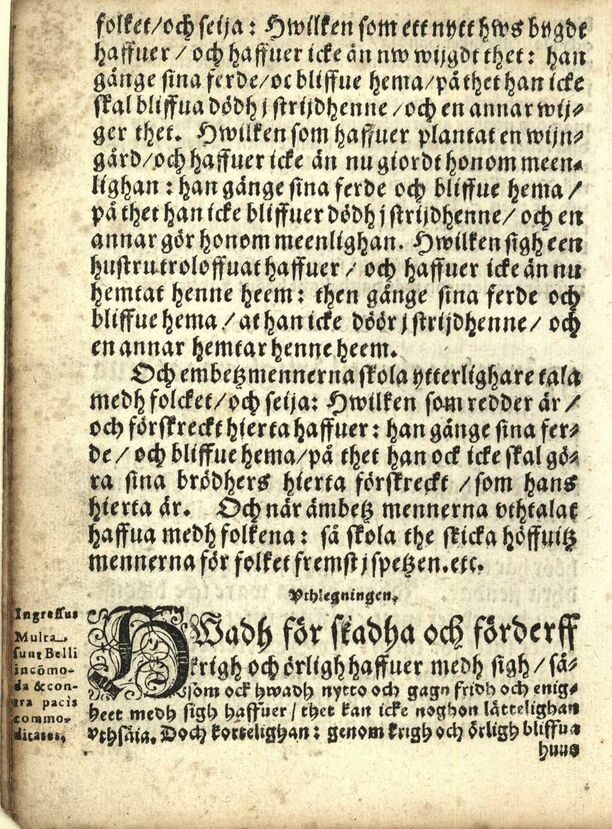 folket/och seija: Hwilken som ett nytt hws bygdt
haffuer / och haffuer icke än nw wijgdt thet: han
gänge sina ferde/oc bliffue hema/på thet han icke
skal bliffua dödh j strijdhenne/och en annar wij⸗
ger thet. Hwilken som haffuer plantat en wijn⸗
gård/och haffuer icke än nu giordt honom meen⸗
lighan: han gänge sina ferde och bliffue hema/
på thet han icke bliffuer dödh j strijdhenne/ och en
annar gör honom meenlighan. Hwilken sigh een
hustru troloffuat haffuer / och haffuer icke än nu
hemtat henne heem: then gänge sina ferde och
bliffue hema / at han icke döör j strijdhenne/ och
en annar hemtar henne heem.
Och embetzmennerna skola ytterlighare tala
medh folcket/och seija: Hwilken som redder är/
och förskreckt hierta haffuer: han gänge sina fer⸗
de/ och bliffue hema/på thet han ock icke skal gö⸗
ra sina brödhers hierta förskreckt /som hans
hierta är. Och när ämbetz mennerna vthtalat
haffua medh folkena: så skola the skicka höffuitz
mennerna för folket fremst j spetzen.etc.
Vthlegningen.
HWadh för skadha och förderff
krigh och örligh haffuer medh sigh/ så⸗
som ock hwadh nytto och gagn fridh och enig⸗
heet medh sigh haffuer/thet kan icke noghon lättelighan
vthsäia. Doch kortelighan: genom krigh och örligh bliffua
huus
Ingressus
Multa
sunt Belli
incōmo-
da & con-
tra pacis
commo-
ditates.